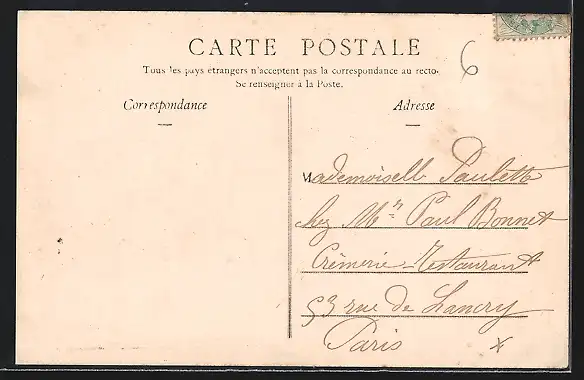 CARTE POSTALE
6
Tous les pays étrangers n'acceptent pas la correspondance au recto.
Se renseigner à la Poste.
Correspondance
Adresse
Mademoiselle Paulette
chez Mr Paul Bonnet
Crèmerie-Restaurant
53 rue de Lancry
Paris